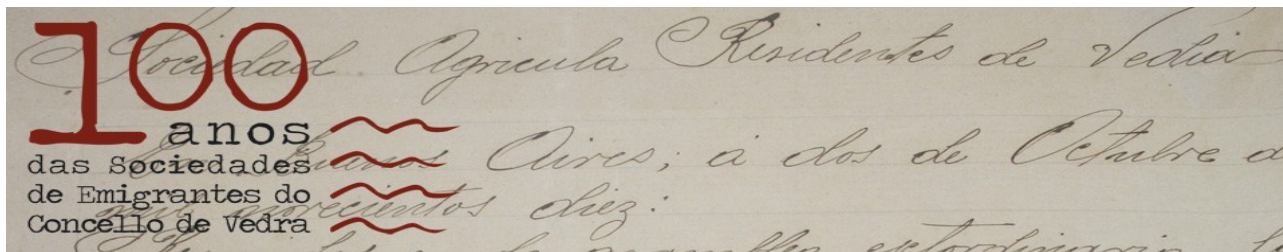 100
anos
das Sociedades
de Emigrantes do
Concello de Vedra
Sociedad Agricula Residentes de Vedra
Buenos Aires; á dos de Octubre d
novecientos diez: